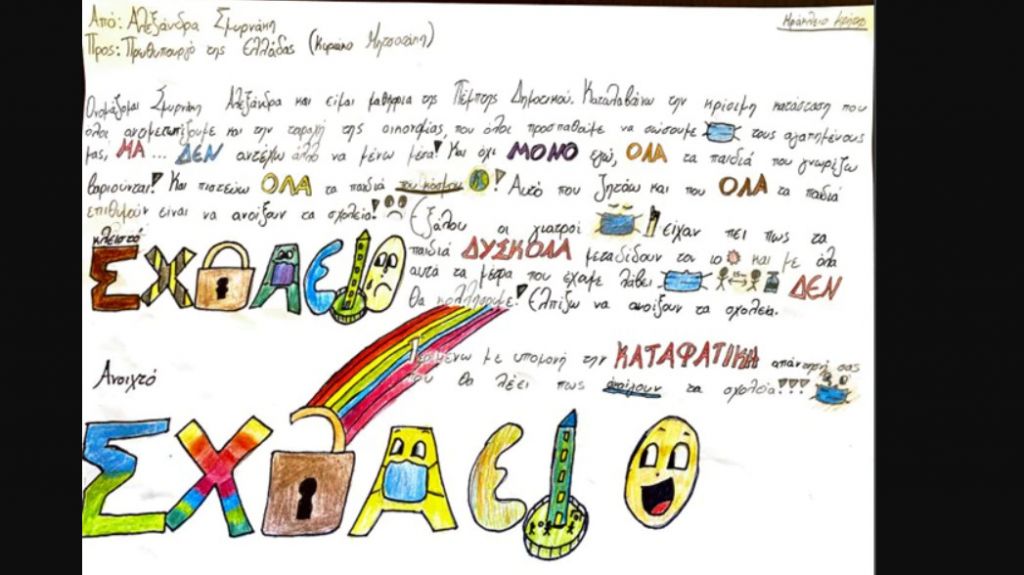 Από: Αλεξάνδρα Σμυρνάκη
Ηράκλειο Κρήτης
Προς: Πρωθυπουργό της Ελλάδας (Κυριάκο Μητσοτάκη)
Ονομάζομαι Σμυρνάκη Αλεξάνδρα και είμαι μαθήτρια της Πέμπτης Δημοτικού. Καταλαβαίνω την κρίσιμη κατάσταση που
όλοι αντιμετωπίζουμε και την ταραχή της οικονομίας, που όλοι προσπαθούμε να σώσουμε τους αγαπημένους
μας, ΜΑ ... ΔΕΝ αντέχω άλλο να μένω μέσα! Και όχι ΜΟΝΟ εγώ, ΟΛΑ τα παιδιά που γνωρίζω
βαριούνται! Και πιστεύω ΟΛΑ τα παιδιά του κόσμου! Αυτό που ζητάω και που ΟΛΑ τα παιδιά
επιθυμούν είναι να ανοίξουν τα σχολεία!
Εξάλλου οι γιατροί είχαν πει πως τα
παιδιά ΔΥΣΚΟΛΑ μεταδίδουν τον ιο και με όλα
αυτά τα μέτρα που έχουμε λάβει ΔΕΝ
θα κολλήσουμε! Ελπίζω να ανοίξουν τα σχολεία.
κλειστό
ΣΧΟΛΕΙΟ
Περιμένω με υπομονή την ΚΑΤΑΦΑΤΙΚΗ απάντησή σας
που θα λέει πως ανοίγουν τα σχολεία!!!
Ανοιχτό
ΣΧΟΛΕΙΟ